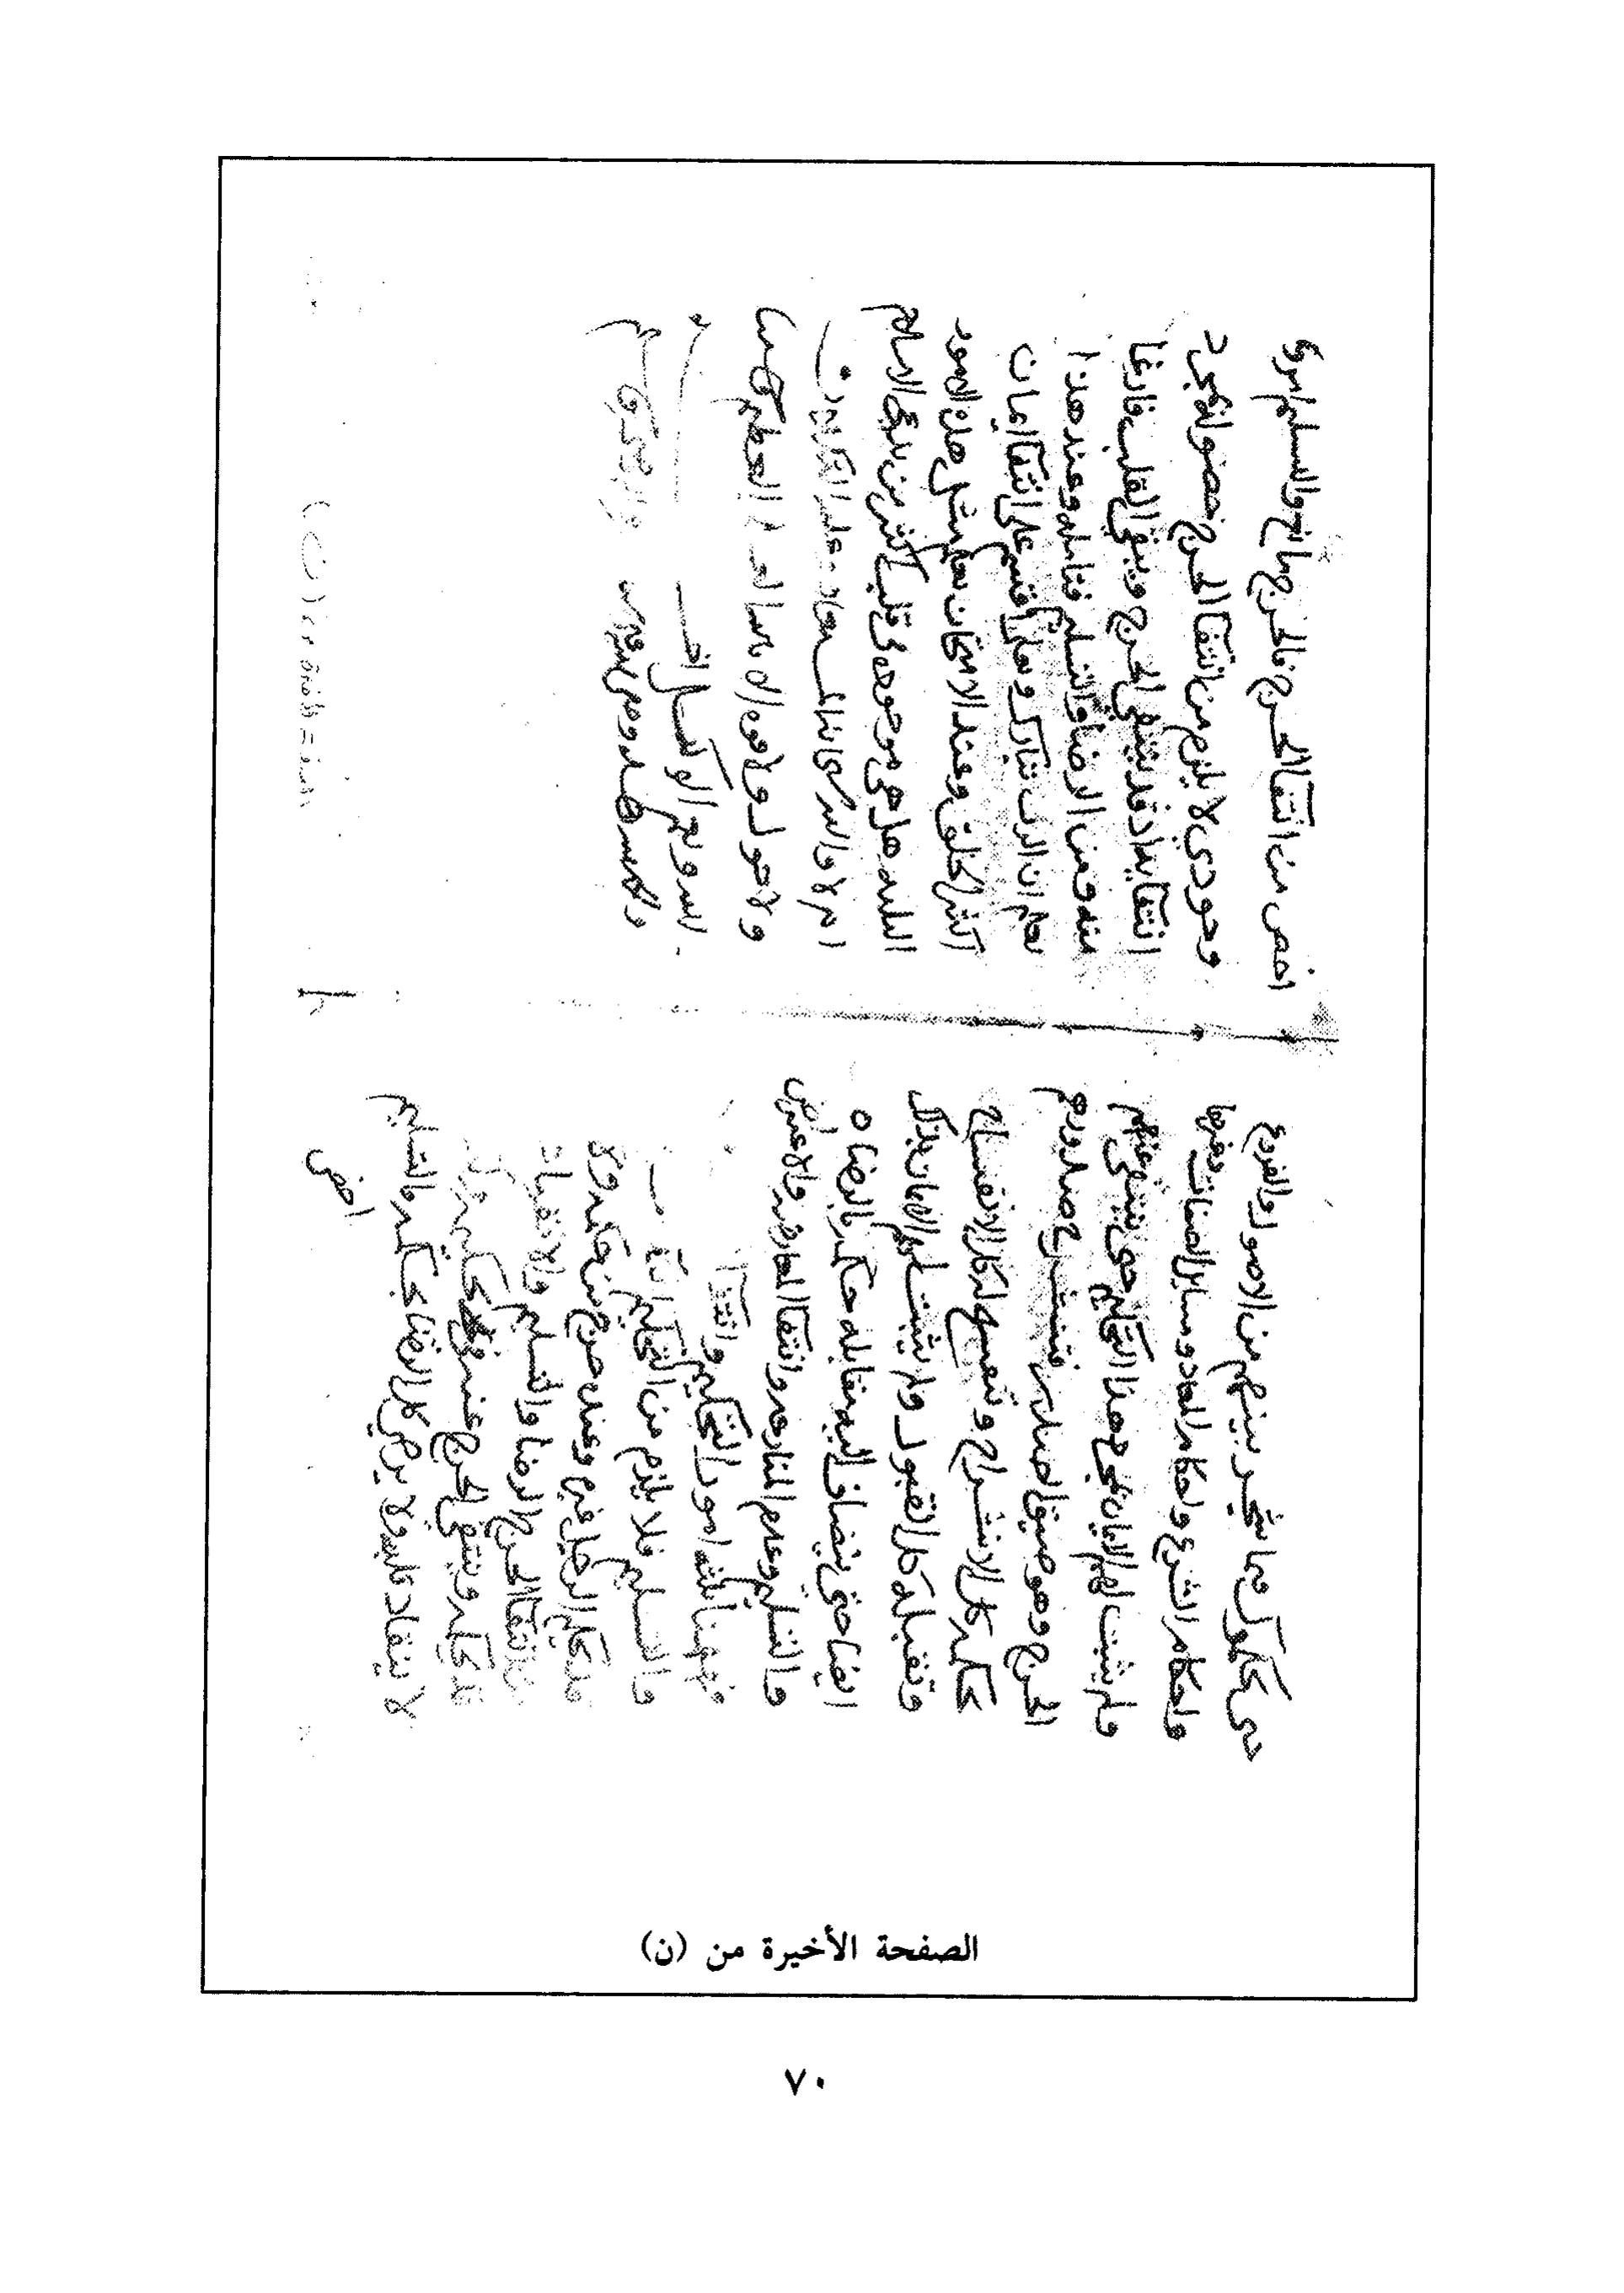 حتى يحكموك فيما شجر بينهم من الاصول والفروع
واحكام الشرع واحكام المعاد وسائر الصفات وغيرها
ولم يثبت لهم الايمان بمجرد هذا التحكيم حتى ينتفي عنهم
الحرج وهو ضيق الصدر فتنشرح صدورهم
لحكمه كل الانشراح وتنفسح له كل الانفساح
وتقبله كل القبول ولم يثبت لهم الايمان بذلك
ايضا حتى ينضاف اليه مقابلة حكمه بالرضاه
والتسليم وعدم المنازعه وانتفا المعارضه والاعتراض
فههنا ثلثة امور التحكيم وانتفا
والتسليم فلا يلزم من التحكيم انتفا
الرجل غيره وعنده حرج من حكمه ولا
انتفا الحرج الرضا والتسليم والانقياد
وينتفي الحرج عنه في تحكيمه
لا ينقاد قلبه ولا يرضى كل الرضا بحكمه والتسليم
اخص
اخص من انتفا الحرج فالحرج مانع والتسليم امر
وجودي لا يلزم من انتفا الحرج حصوله بمجرد
انتفايه اذ قد ينتفي الحرج ويبقى القلب فارغا
منه ومن الرضا والتسليم فتامله وعند هذا
يعلم ان الرب تبارك وتعالى اقسم على انتفا ايمان
اكثر الخلق وعند الامتحان تعلم مثل هذه الامور
الثلثه هل هي موجوده في قلب اكثر من يدعي الاسلام
ام لا والله
ولا حول ولا قوة الا بالله العلي العظيم حسبنا
الله ونعم الوكيل
الصفحة الأخيرة من (ن)
٧٠